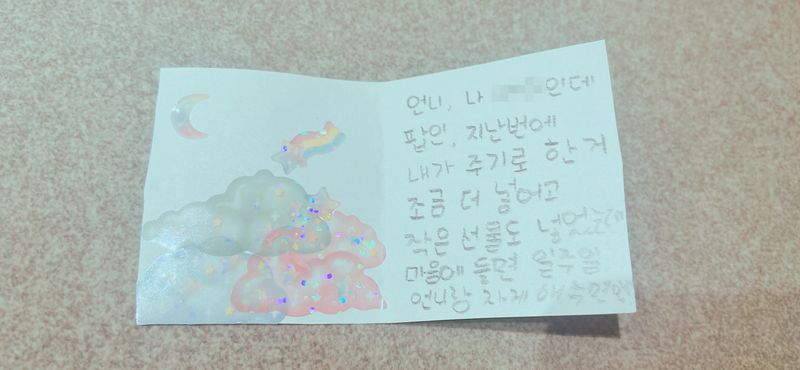 언니, 나 인데
팝인, 지난번에
내가 주기로 한 거
조금 더 넣어고
작은 선물도 넣었는데
마음에 들면 일주일
언니랑 자게 해주면